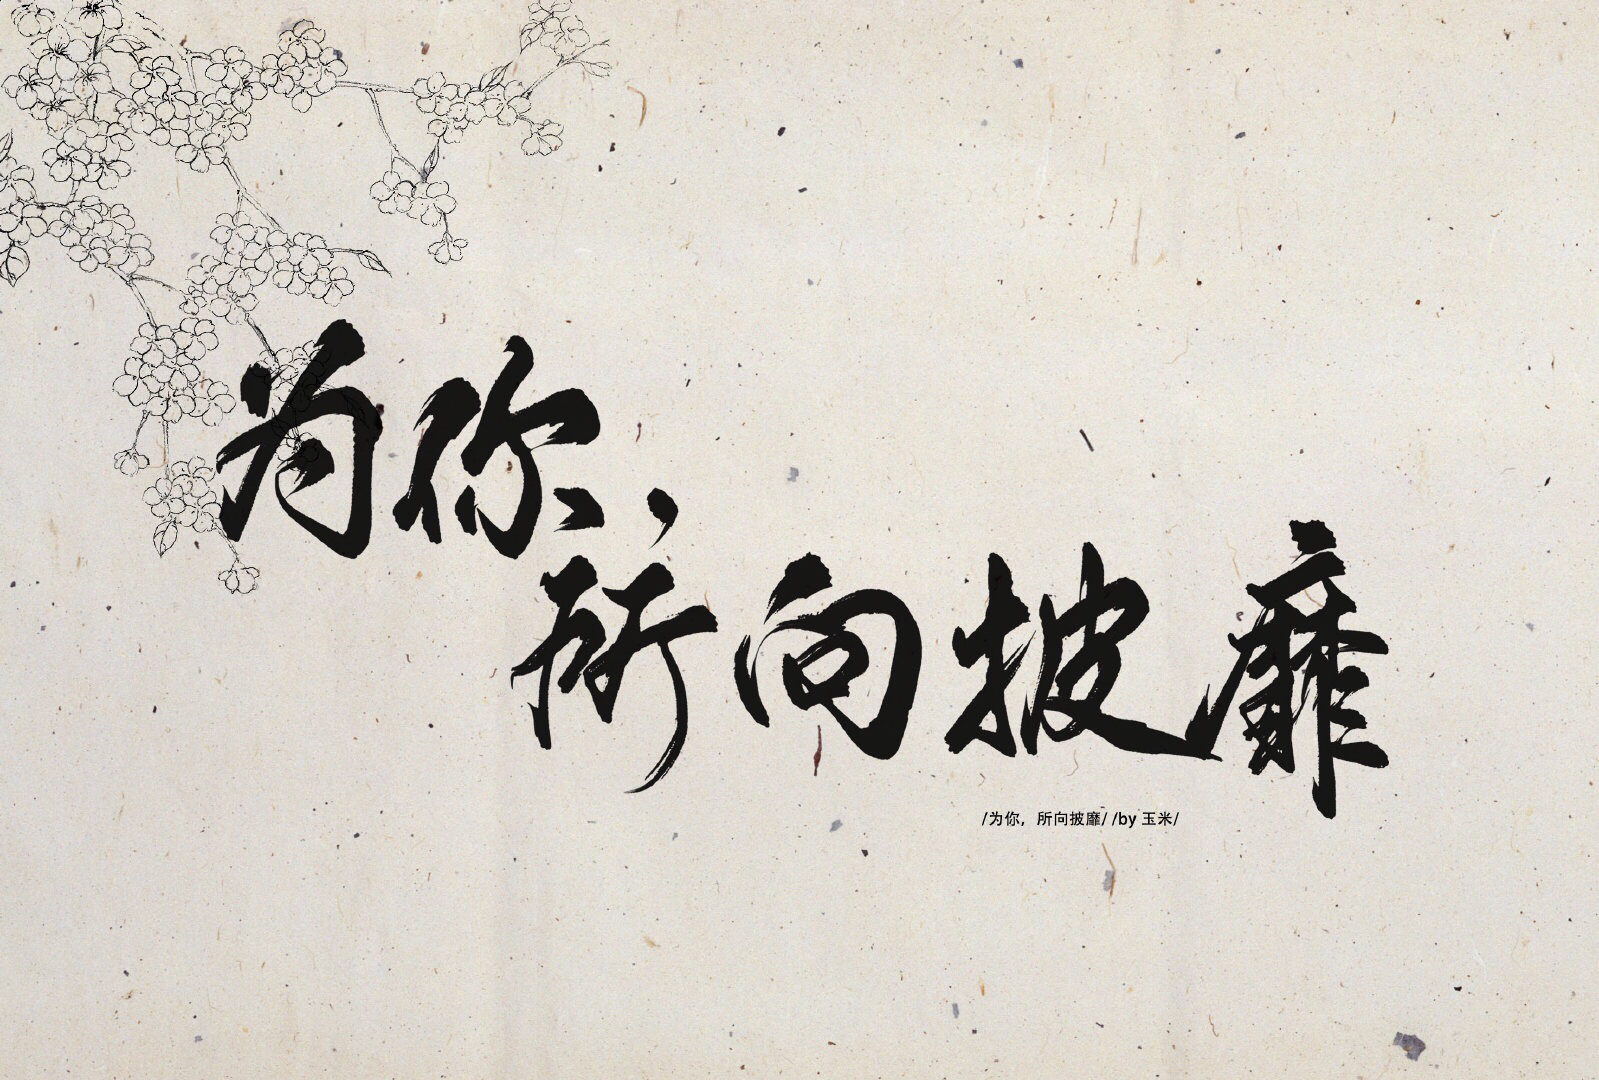 为你，
所向披靡
/为你，所向披靡/ /by 玉米/